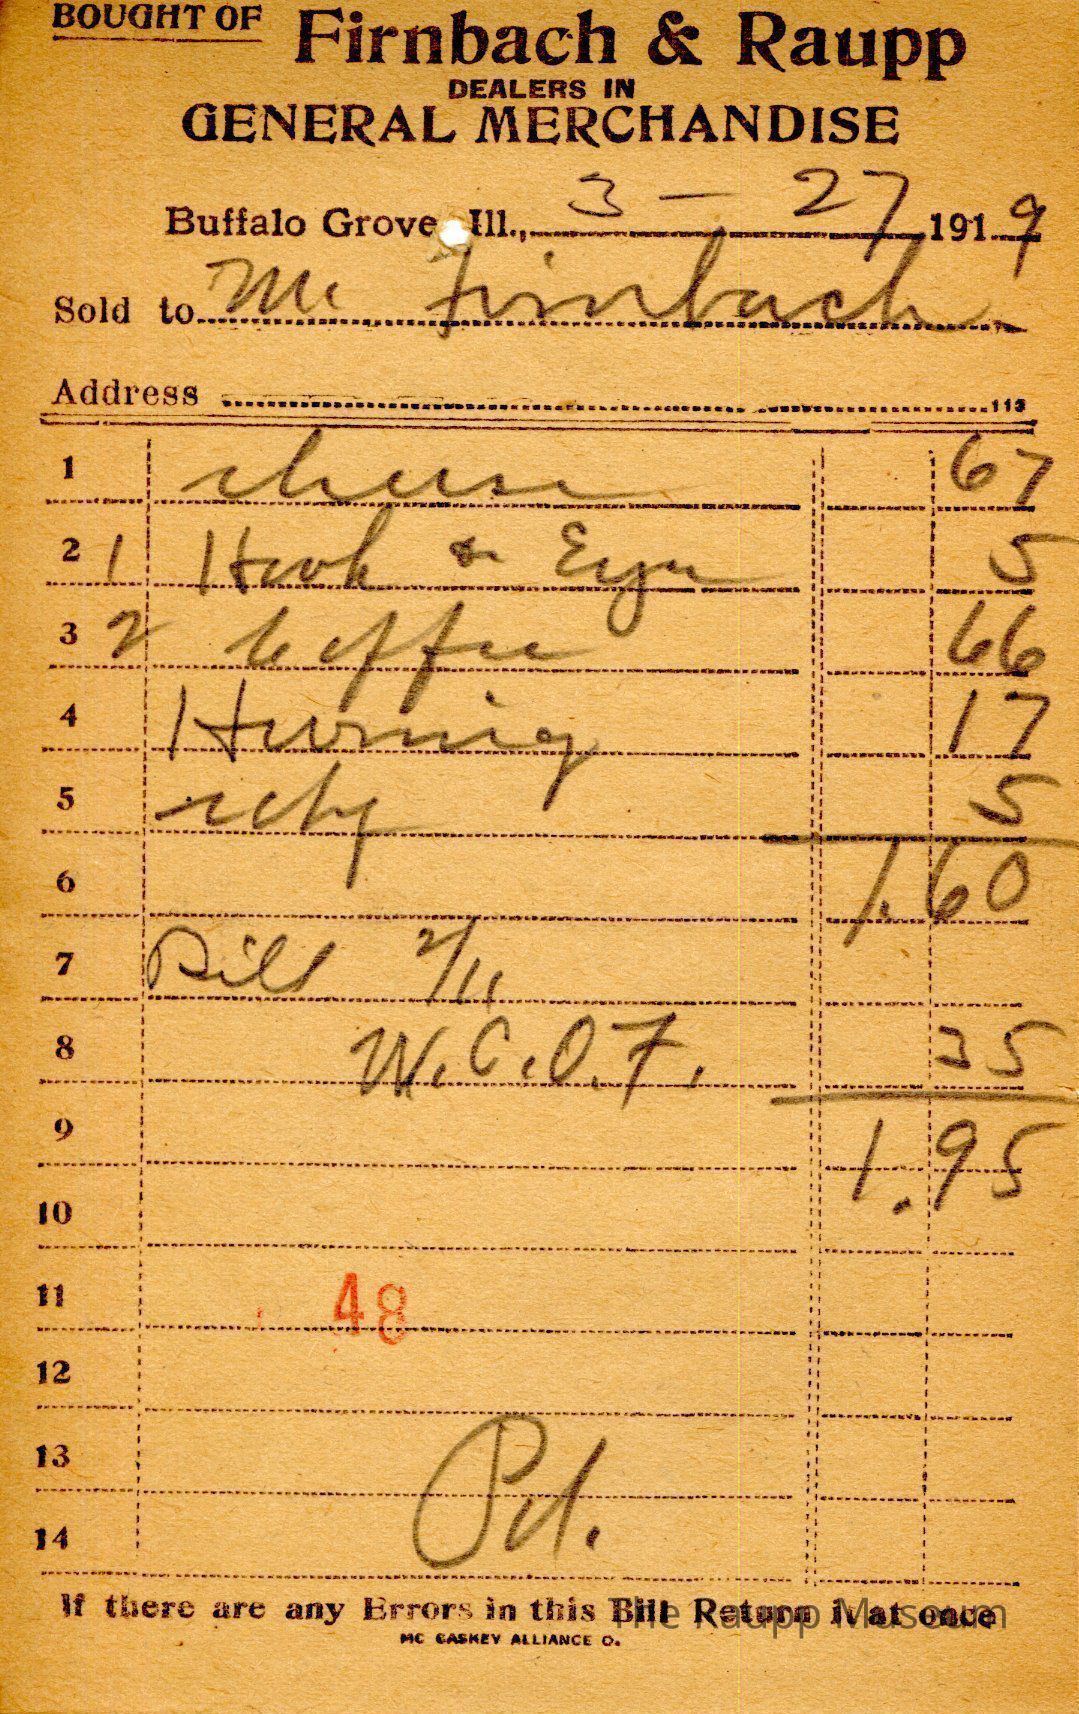 BOUGHT OF Firnbach & Raupp
DEALERS IN
GENERAL MERCHANDISE
Buffalo Grove, Ill., 3 - 27 1919
Sold to Mr Firnbach
Address 113
1 cheese 67
2 1 Hook & Eye 5
3 2 Coffee 66
4 Herring 17
5 5
6 1.60
7 Bill 2/11
8 W.C.O.F. 35
9 1.95
10
11 48
12
13 Pd.
14
If there are any Errors in this Bill Return it at once
The Raupp Museum
MC CASKEY ALLIANCE O.